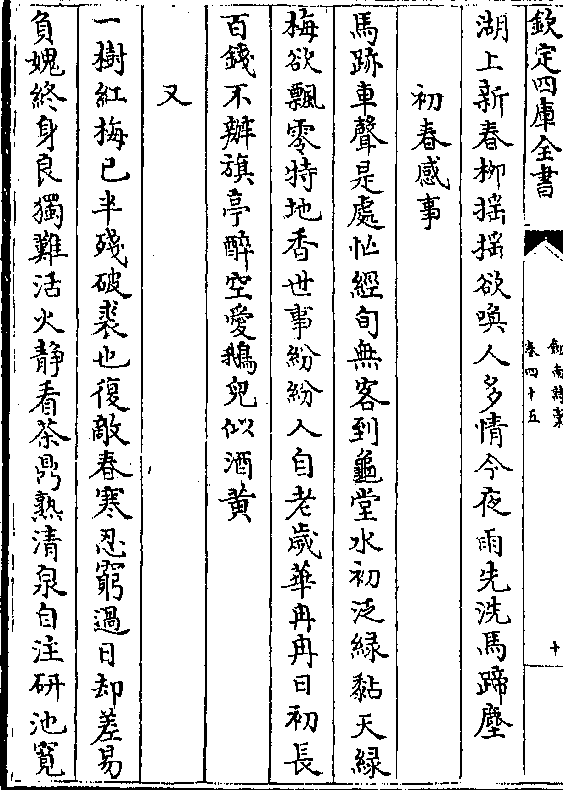 欽定四庫全書
劍南詩稾
卷四十五
十
湖上新春栁揺揺欲喚人多情今夜雨先洗馬蹄塵
初春感事
馬跡車聲是處忙經旬無客到龜堂水初泛緑黏天緑
梅欲飄零特地香世事紛紛人自老歲華冉冉日初長
百錢不辦旗亭醉空愛鵝兒似酒黃
又
一樹紅梅已半殘破裘也復敵春寒忍窮過日却差易
負媿終身良獨難活火静看茶鼎熟清泉自注研池寛